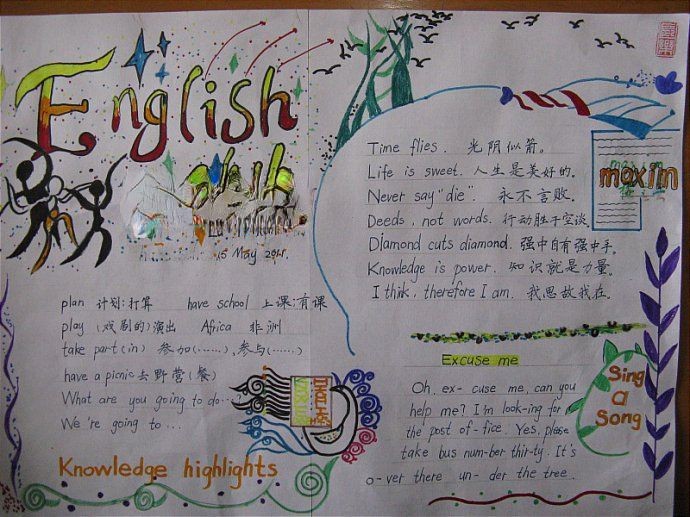 English
15 May
plan 计划;打算 have school 上课;有课
play (戏剧的)演出 Africa 非洲
take part(in) 参加(……),参与(……)
have a picnic 去野营(餐)
What are you going to do…
We're going to …
Knowledge highlights
Time flies. 光阴似箭。
Life is sweet. 人生是美好的。
Never say "die". 永不言败。
Deeds, not words. 行动胜于空谈。
Diamond cuts diamond. 强中自有强中手。
Knowledge is power. 知识就是力量。
I thik, therefore I am. 我思故我在。
maxim
Excuse me
Oh, ex- cuse me, can you
help me? I'm look-ing for
the post of-fice. Yes, please
take bus num-ber thir-ty. It's
o-ver there un- der the tree.
Sing
a
Song